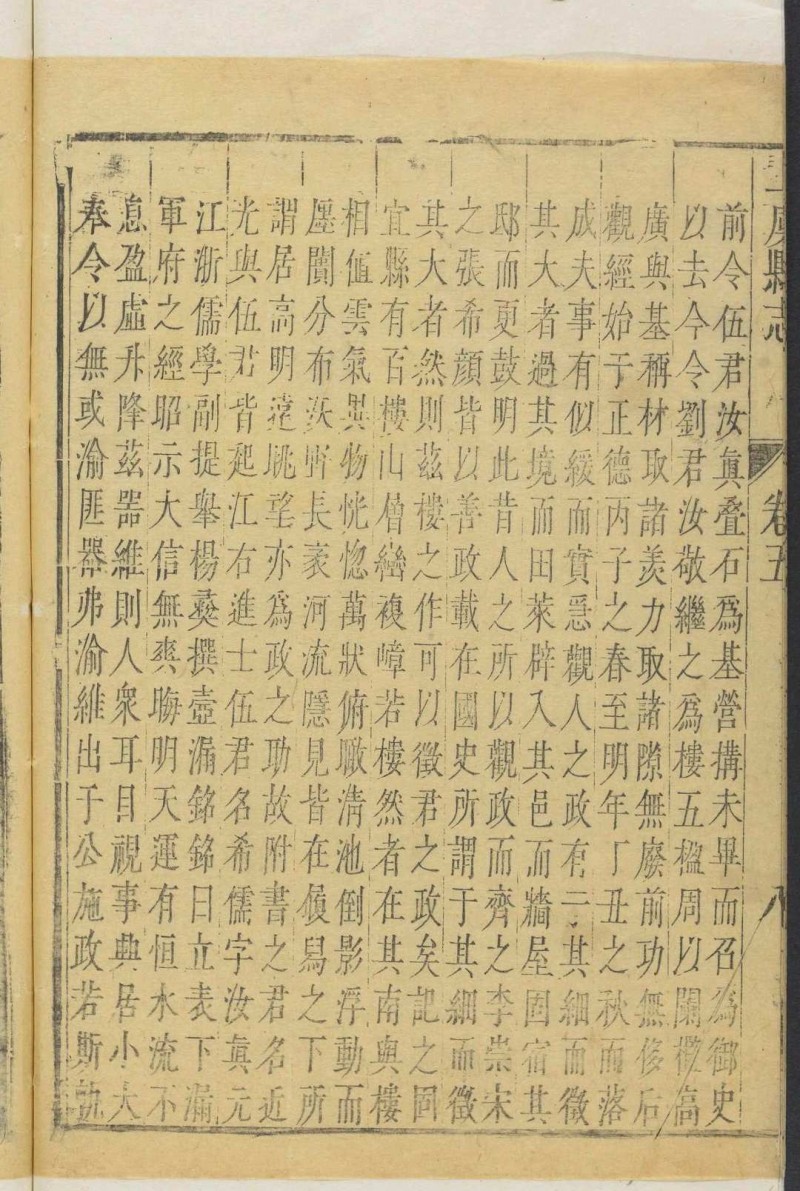 上虞縣志 卷五 八
前令伍君汝真疊石爲基營搆未畢而召爲御史
以去今令劉君汝敬繼之爲樓五楹周以闌檻高
廣與基稱材取諸羨力取諸隙無廢前功無侈后
觀經始于正德丙子之春至明年丁丑之秋而落
成夫事有似緩而實急觀人之政有于其細而徵
其大者過其境而田萊辟入其邑而牆屋固宿其
邸而更鼓明此昔人之所以觀政而齊之李崇宋
之張希顏皆以善政載在國史所謂于其細而徵
其大者然則茲樓之作可以徵君之政矣記之固
宜縣有百樓山層巒複嶂若樓然者在其南與樓
相値雲氣異物恍惚萬狀俯瞰清池倒影浮動而
廛闠分布沃野長豪河流隱見皆在履舄之下所
謂居高明遠眺望亦爲政之功故附書之君名近
光與伍君皆起江右進士伍君名希儒字汝真元
江浙儒學副提舉楊彝撰壺漏銘銘曰立表下漏
軍府之經昭示大信無爽晦明天運有恒水流不
息盈虛升降茲器維則人衆耳目視事典居小大
奉令以無或渝匪器弗渝維出于公施政若斯